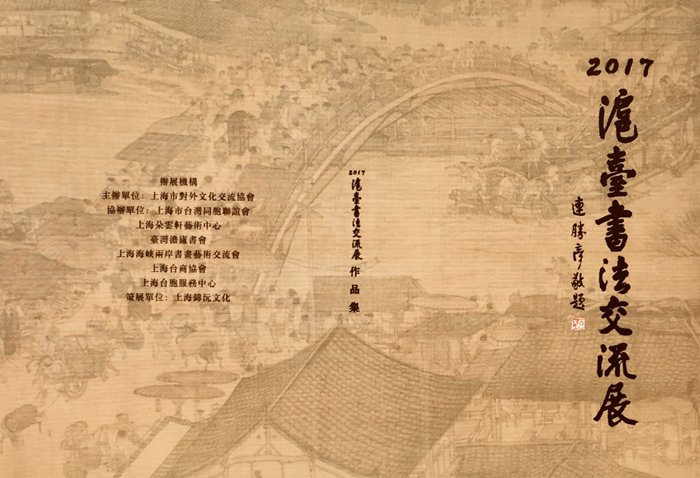 2017
滬臺書法交流展
連勝彥敬題
2017
滬臺書法交流展 作品集
辦展機構
主辦單位：上海市對外文化交流協會
協辦單位：上海市台灣同胞聯誼會
上海朵雲軒藝術中心
臺灣澹廬書會
上海海峽兩岸書畫藝術交流會
上海台商協會
上海台胞服務中心
策展單位：上海錦沅文化